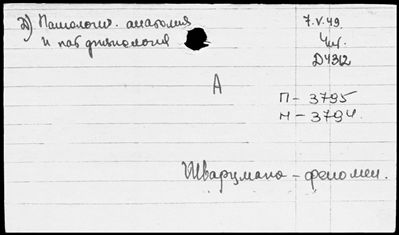 Д) Патологич. анатомия
и пат физиология
7.V.49
Чит.
Д4312
А
П - 3795
Н - 3794.
Шварцмана - феномен.